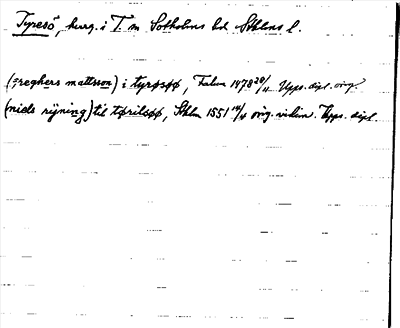 Tyresö, herrg. i T. sn Sotholms hd Sthlms l.
(=reghers mattsson) i tyrøsøø, Falun 1478 20/11 Upps. dipl. orig.
(niels rijning) til tørilsøø, Sthlm 1551 14/4 orig. vidim. Upps. dipl.